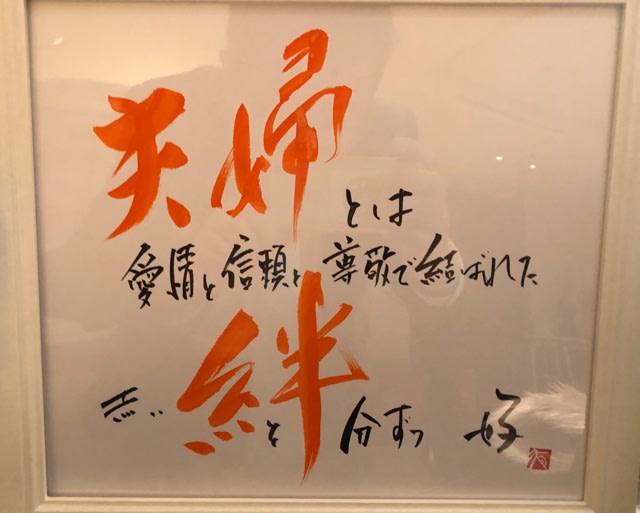 夫婦とは
愛情と信頼と尊敬で結ばれた
絆と 分ずっ 好